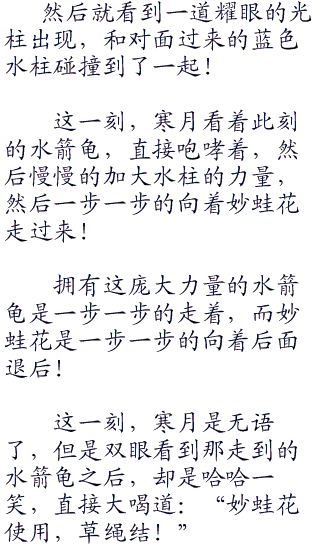 然后就看到一道耀眼的光
柱出现，和对面过来的蓝色
水柱碰撞到了一起！
这一刻，寒月看着此刻
的水箭龟，直接咆哮着，然
后慢慢的加大水柱的力量，
然后一步一步的向着妙蛙花
走过来！
拥有这庞大力量的水箭
龟是一步一步的走着，而妙
蛙花是一步一步的向着后面
退后！
这一刻，寒月是无语
了，但是双眼看到那走到的
水箭龟之后，却是哈哈一
笑，直接大喝道：“妙蛙花
使用，草绳结！”